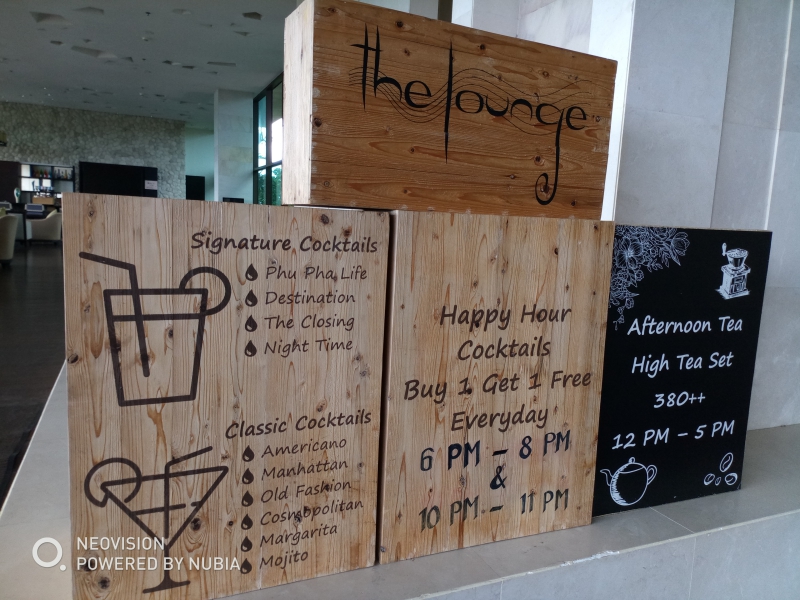 the lounge
Signature Cocktails
Phu Pha Life
Destination
The Closing
Night Time
Classic Cocktails
Americano
Manhattan
Old Fashion
Cosmopolitan
Margarita
Mojito
Happy Hour
Cocktails
Buy 1 Get 1 Free
Everyday
6 PM – 8 PM
&
10 PM – 11 PM
Afternoon Tea
High Tea Set
380++
12 PM – 5 PM
NEOVISION
POWERED BY NUBIA